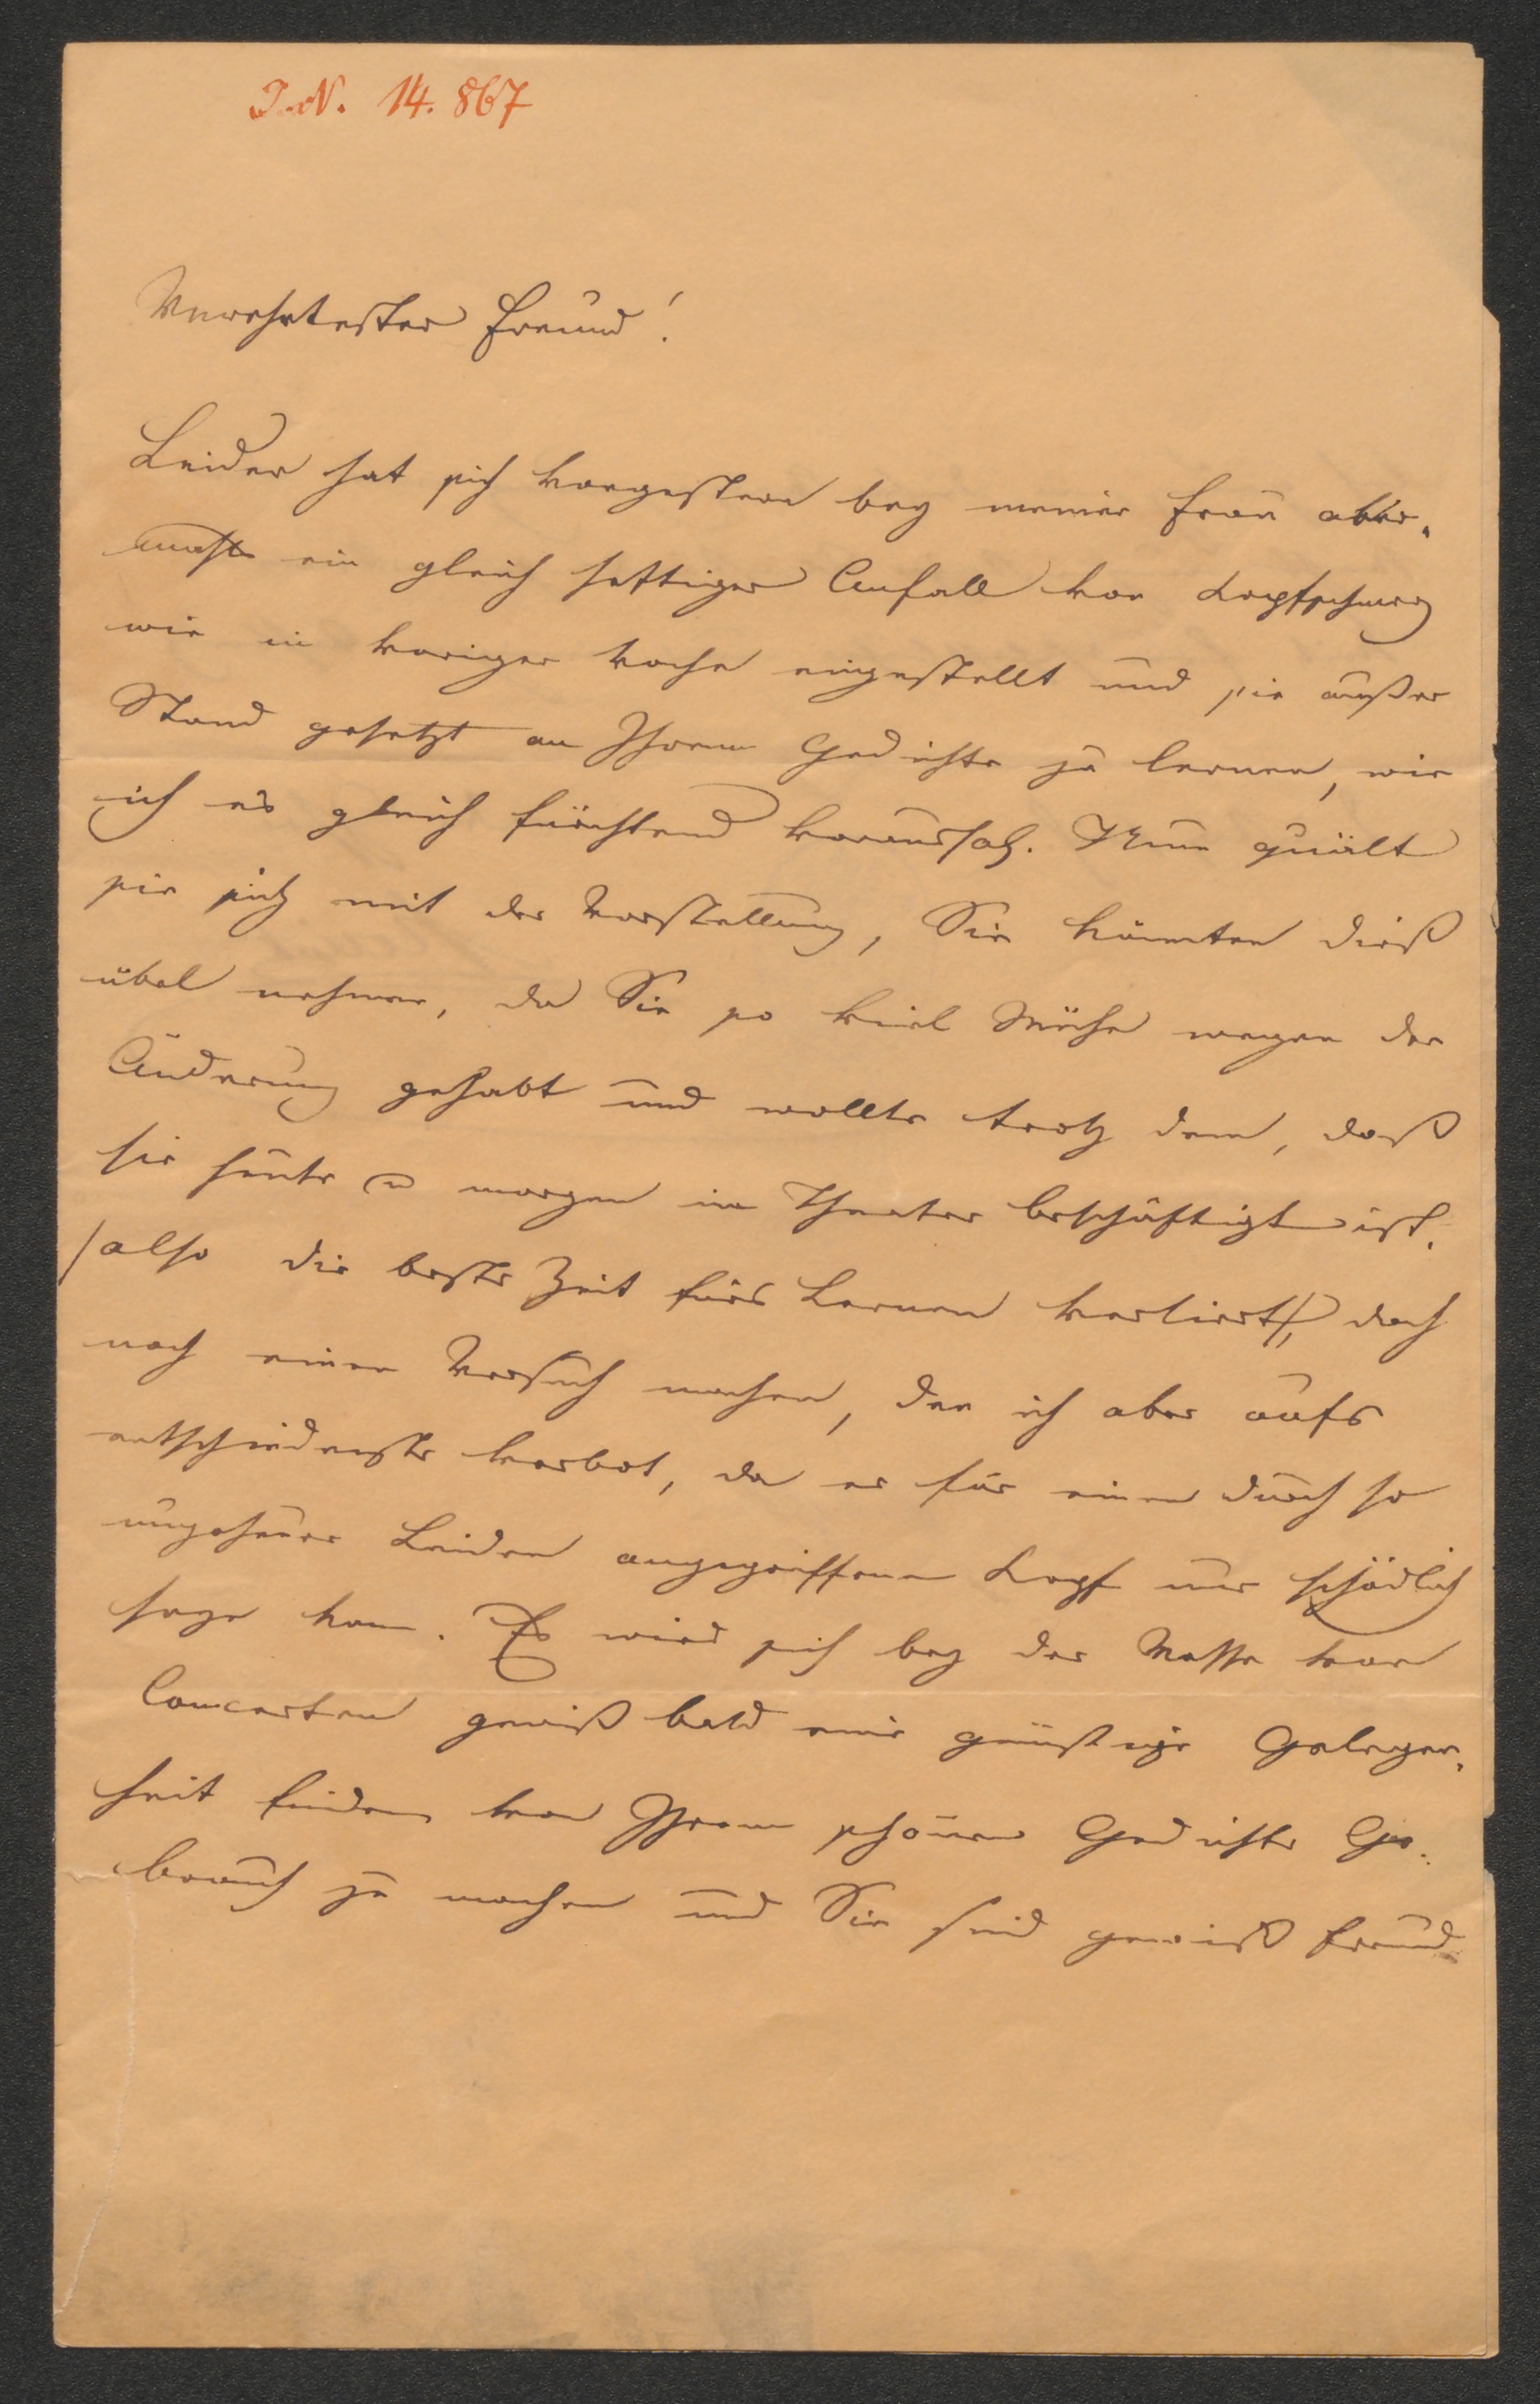 I.N. 14.867
Verehrtester Freund!
Leider hat sich vorgestern bey meiner Frau aber-
mahls ein gleich heftiger Anfall von Kopfschmerz
wie in voriger Woche eingestellt und sie außer
Stand gesetzt an Ihrem Gedichte zu lernen, wie
ich es gleich fürchtend voraussah. Nun quält
sie sich mit der Vorstellung, Sie könnten dieß
übel nehmen, da Sie so viel Mühe wegen der
Änderung gehabt und wollte trotz dem, daß
sie heute u morgen im Theater beschäftigt ist,
/also die beste Zeit fürs Lernen verliert/, doch
noch einen Versuch machen, den ich aber aufs
entschiedenste verbot, da er für einen durch so
ungeheure Leiden angegriffenen Kopf nur schädlich
seyn kann. Es wird sich bey der Masse von
Concerten gewiß bald eine günstige Gelegen-
heit finden von Ihrem schönen Gedichte Ge-
brauch zu machen und Sie sind gewiß freund